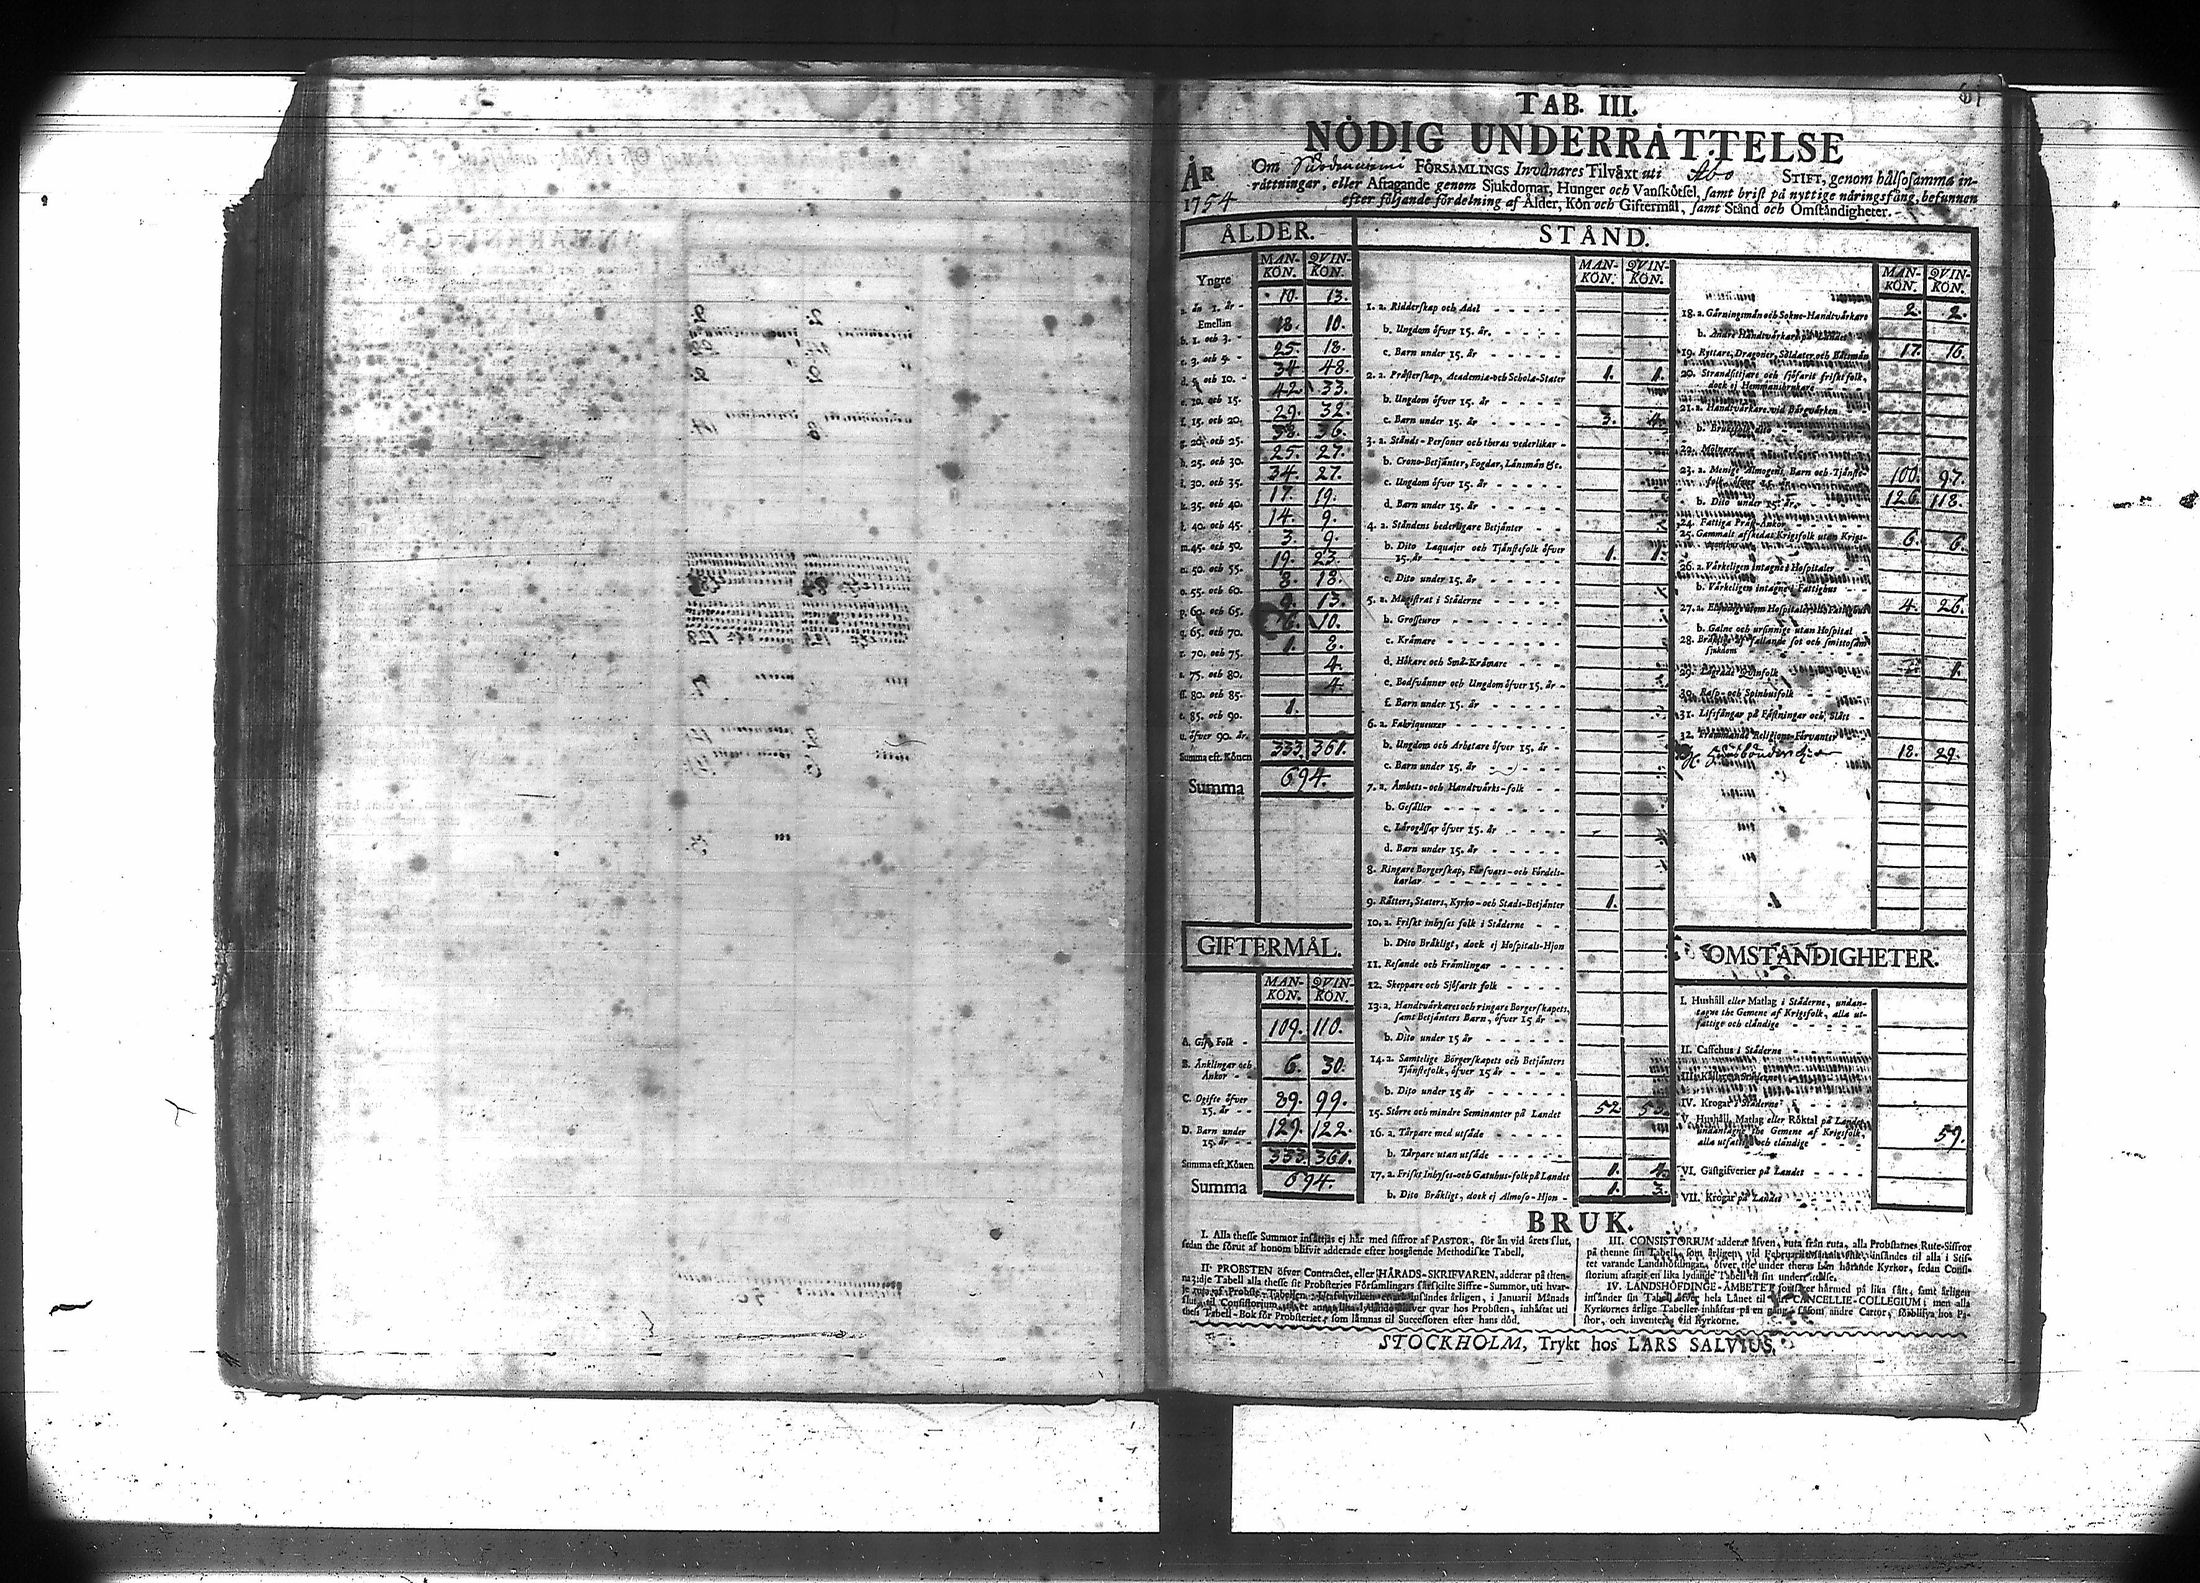 61
TAB. III.
NÖDIG UNDERRÄTTELSE
ÅR 1754
Om FÖRSAMLINGS Invånares Tilväxt uti Åbo STIFT, genom hälsosamma in-
rättningar, eller Aftagande genom Sjukdomar, Hunger och Vanskötsel, samt brist på nyttige näringsfång, befunnen
efter följande fördelning af Ålder, Kön och Giftermål, samt Stånd och Omständigheter.
ÅLDER.
MAN-KÖN. QVIN-KÖN.
Yngre
a. än 1. år - 10. 13.
Emellan
b. 1. och 3. - 18. 10.
c. 3. och 5. - 25. 18.
d. 5 och 10. - 34. 48.
e. 10. och 15. 42. 33.
f. 15. och 20. 29. 32.
g. 20. och 25. 38. 36.
h. 25. och 30. 25. 27.
i. 30. och 35. 34. 27.
k. 35. och 40. 17. 19.
l. 40. och 45. 14. 9.
m. 45. och 50. 3. 9.
n. 50. och 55. 19. 23.
o. 55. och 60. 8. 18.
p. 60. och 65. 9. 13.
q. 65. och 70. 10.
r. 70. och 75. 1. 2.
s. 75. och 80. 4.
ff. 80. och 85. 4.
t. 85. och 90. 1.
u. öfver 90. år.
Summa eft. Könen 333. 361.
Summa 694.
GIFTERMÅL.
MAN-KÖN. QVIN-KÖN.
A. Gift Folk - 109. 110.
B. Änklingar och
Änkor - - 6. 30.
C. Ogifte öfver
15. år - - 89. 99.
D. Barn under
15. år - - 129. 122.
Summa eft. Könen 333. 361.
Summa 694.
STÅND.
MAN-KÖN. QVIN-KÖN.
1. a. Ridderskap och Adel
b. Ungdom öfver 15. år.
c. Barn under 15. år
2. a. Prästerskap, Academia-och Schola-Stater 1. 1.
b. Ungdom öfver 15. år
c. Barn under 15. år 3. 4.
3. a. Stånds-Personer och theras vederlikar
b. Crono-Betjänter, Fogdar, Länsmän &c.
c. Ungdom öfver 15. år
d. Barn under 15. år
4. a. Ståndens hederligare Betjänter
b. Dito Laquajer och Tjänstefolk öfver
15. år 1. 1.
c. Dito under 15. år
5. a. Magistrat i Städerne
b. Grosseurer
c. Krämare
d. Hökare och Små-Krämare
e. Bodsvänner och Ungdom öfver 15. år
f. Barn under 15. år
6. a. Fabriqueurer
b. Ungdom och Arbetare öfver 15. år
c. Barn under 15. år
7. a. Ämbets-och Handtvärks-folk
b. Gesäller
c. Lärogåssar öfver 15. år
d. Barn under 15. år
8. Ringare Borgerskap, Försvars-och Fördels-
karlar
9. Rätters, Staters, Kyrko-och Stads-Betjänter 1.
10. a. Friskt inhyses folk i Städerne
b. Dito Bräkligt, dock ej Hospitals-Hjon
11. Resande och Främlingar
12. Skeppare och Sjöfarit folk
13. a. Handtvärkares och ringare Borgerskapets,
samt Betjänters Barn, öfver 15 år
b. Dito under 15 år
14. a. Samtelige Borgerskapets och Betjänters
Tjänstefolk, öfver 15 år
b. Dito under 15 år
15. Större och mindre Seminanter på Landet 52 53.
16. a. Torpare med utsäde
b. Torpare utan utsäde
17. a. Friskt Inhyses-och Gatuhus-folk på Landet 1. 4.
b. Dito Bräkligt, dock ej Almoso-Hjon - 1. 3.
MAN-KÖN. QVIN-KÖN.
18. a. Gärningsmän och Sokne-Handtvärkare 2. 2.
b. Andre Handtvärkare på Landet
19. Ryttare, Dragoner, Soldater och Båtsmän 17. 16.
20. Strandsittjare och sjöfarit friskt folk,
dock ej Hemmansbrukare
21. a. Handtvärkare vid Bärgvärken
b. Bruksfolk dito
22. Mölnare
23. a. Menige Almogens Barn och Tjänste-
folk öfver 15. år 100. 97.
b. Dito under 15. år. 126. 118.
24. Fattiga Präst-Änkor
25. Gammalt afskedat Krigsfolk utan Krigs- 6. 6.
26. a. Värkeligen intagne i Hospitaler
b. Värkeligen intagne i Fattighus
27. a. 4. 26.
b. Galne och ursinnige utan Hospital
28. Bräklige af fallande sot och smittosam
sjukdom 1.
29. Lägrade Qvinfolk
30. Rasp-och Spinhusfolk
31. Lifsfångar på Fästningar och Slått
32. Främmande Religions-Förvanter
18. 29.
OMSTÄNDIGHETER.
I. Hushåll eller Matlag i Städerne, undan-
tagne the Gemene af Krigsfolk, alla ut-
fattige och eländige
II. Caffehus i Städerne
III. Källare i Städerne
IV. Krogar i Städerne
V. Hushåll, Matlag eller Röktal på Landet,
undantagne the Gemene af Krigsfolk,
alla utfattige och eländige 59.
VI. Gästgifverier på Landet
VII. Krogar på Landet
BRUK.
I. Alla thesse Summor insättjas ej här med siffror af PASTOR, för än vid årets slut,
sedan the förut af honom blifvit adderade efter hosgående Methodiske Tabell.
II. PROBSTEN öfver Contractet, eller HÄRADS-SKRIFVAREN, adderar på then-
na 3:dje Tabell alla thesse sit Probsteries Församlingars särskilte Siffre-Summor, uti hvar-
je ruta af Probste-Tabellen; insändes årligen, i Januarii Månads
slut, til Consistorium, qvar hos Probsten, inhäftat uti
thess Tabell-Bok för Probsteriet, som lämnas til Successoren efter hans död.
III. CONSISTORIUM adderar äfven, ruta från ruta, alla Probstarnes Rute-Siffror
på thenne sin Tabell, som årligen vid Februarii Månads slut, insändes til alla i Stif-
tet varande Landshöfdingar, öfver the under theras Län hörande Kyrkor, sedan Consi-
storium aftagit en lika lydande Tabell til sin underrättelse.
IV. LANDSHÖFDINGE-ÄMBETET fortsäter härmed på lika sätt, samt årligen
insänder sin Tabell öfver hela Länet til CANCELLIE-COLLEGIUM; men alla
Kyrkornes årlige Tabeller inhäftas på en gång, såsom andre Cartor, förblifva hos Pa-
stor, och inventeras vid Kyrkorne.
STOCKHOLM, Tryckt hos LARS SALVIUS.